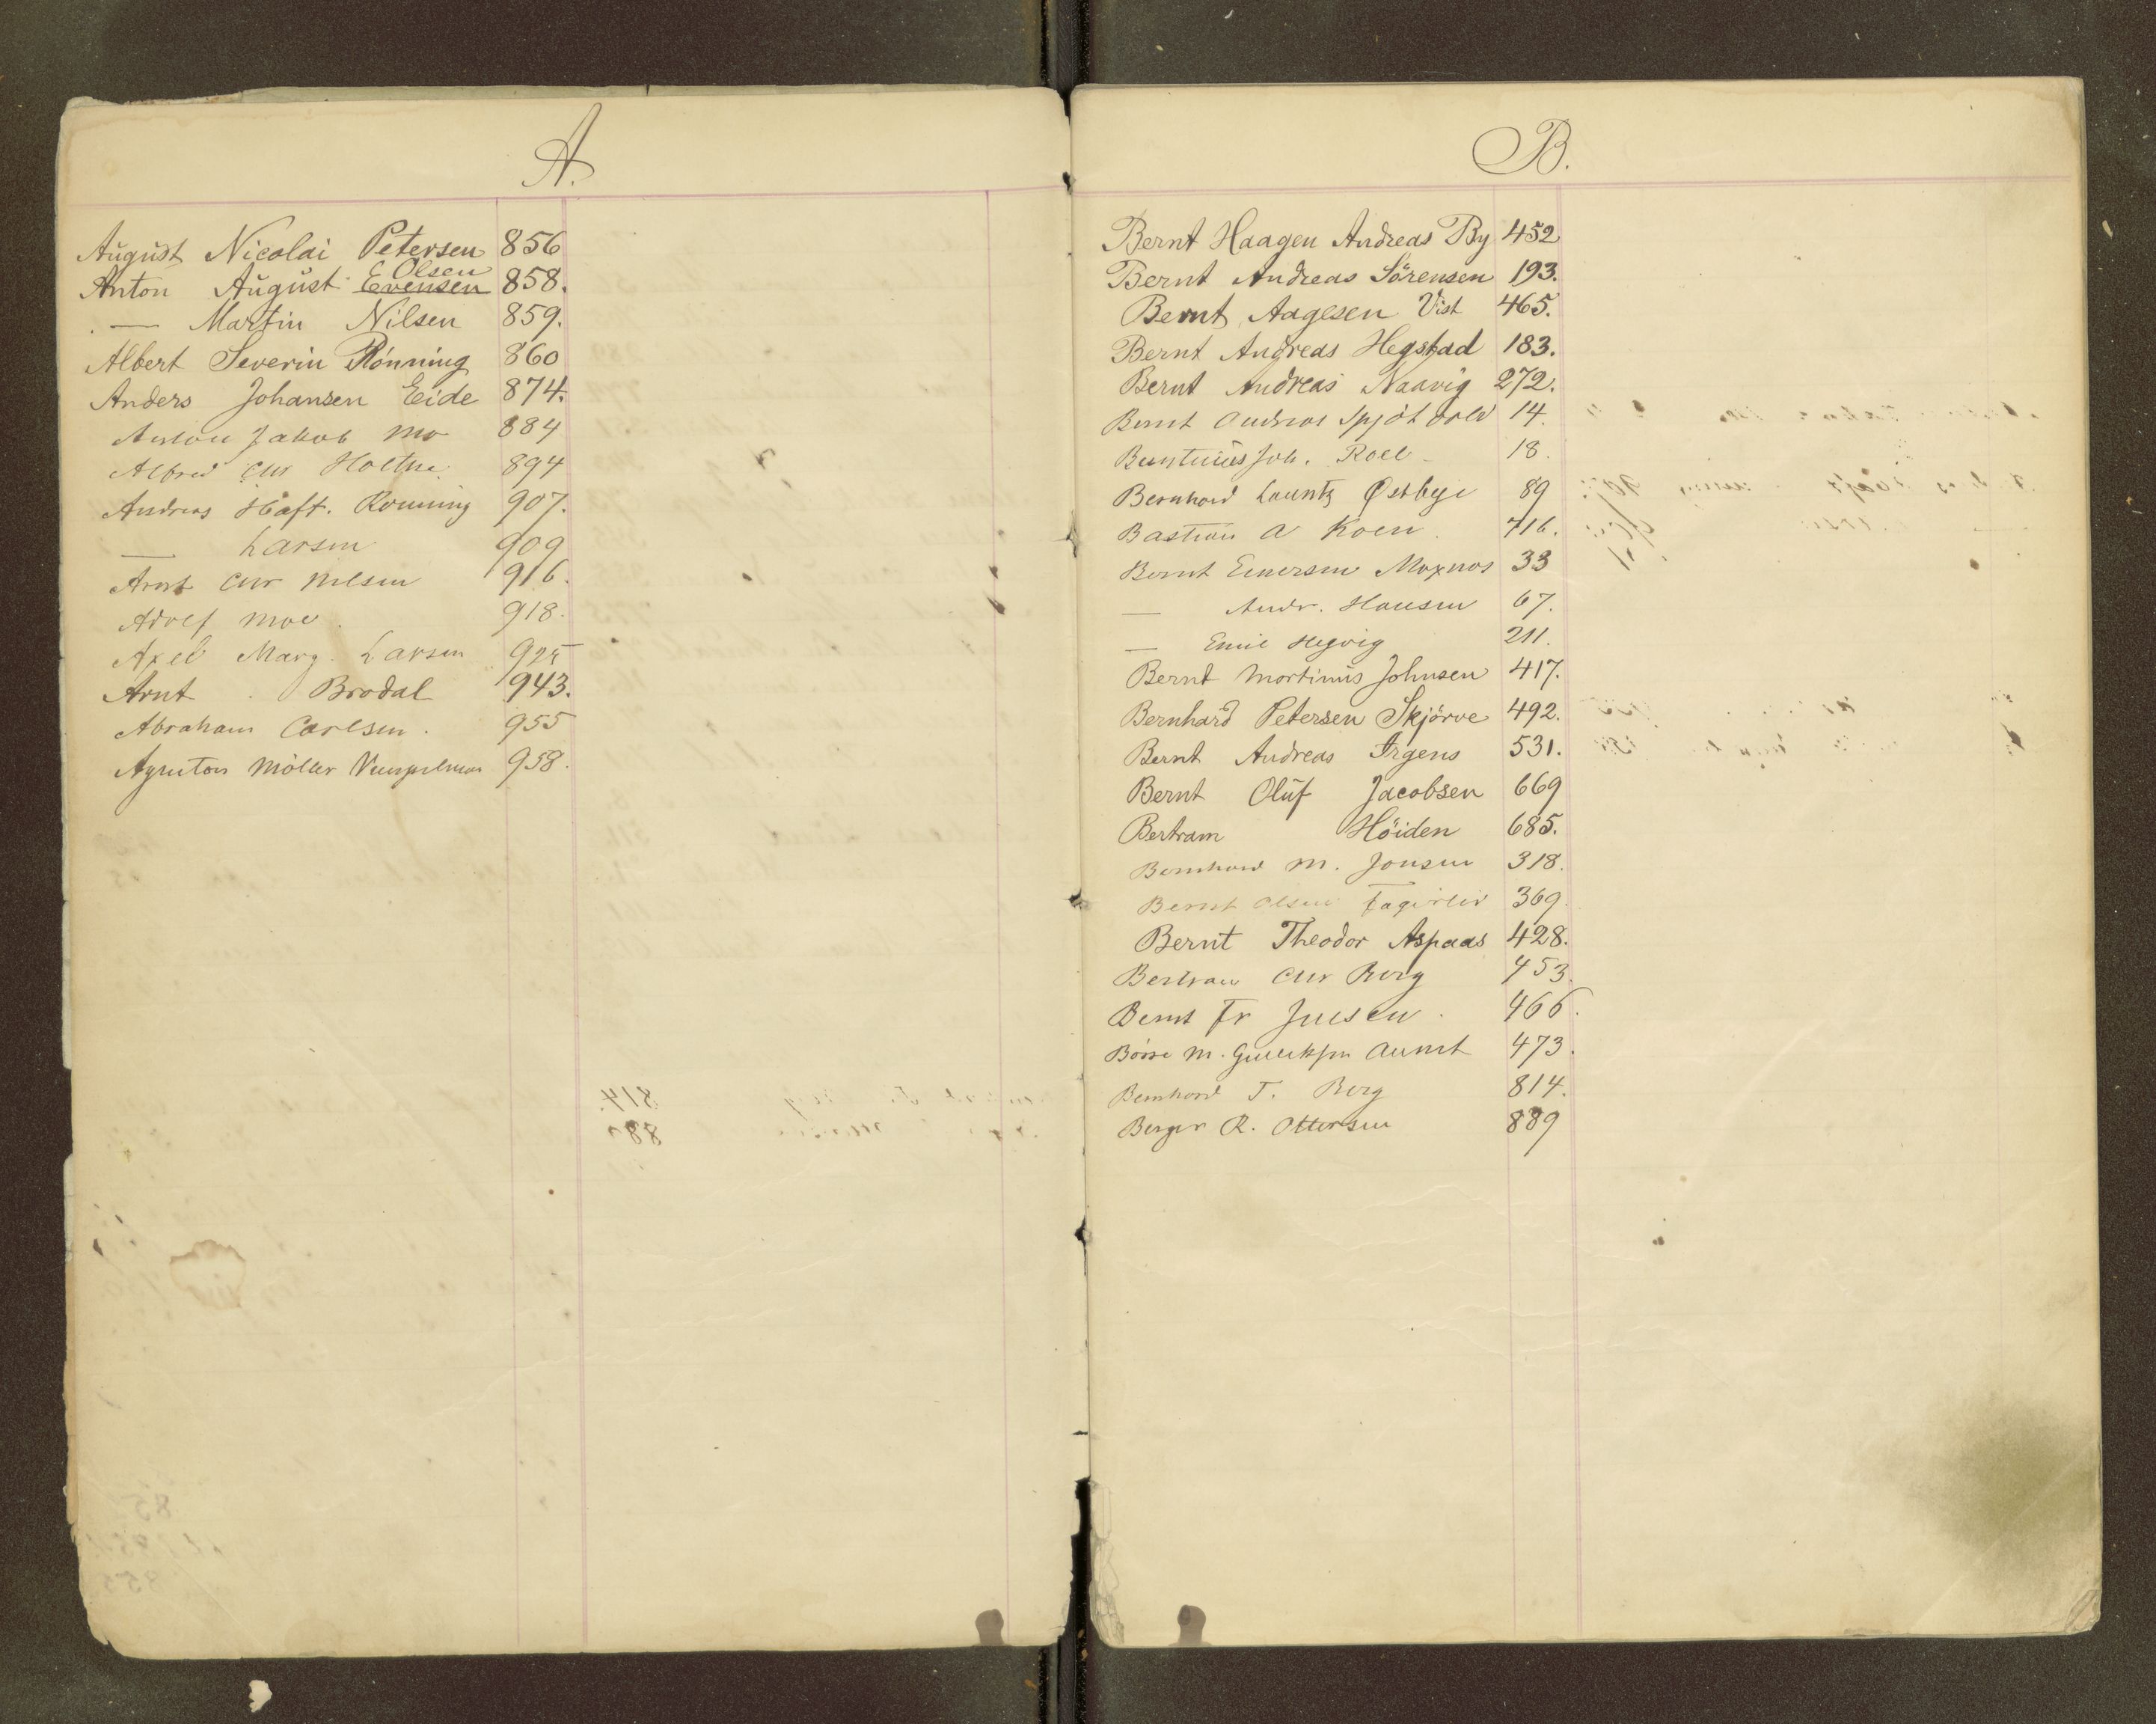 A.
August Nicolai Petersen 856
Olsen
Anton August E Evensen 858.
— Martin Nilsen 859.
Albert Severin Rönning 860
Anders Johansen Eide 874.
Anton Jakob Mo 884
Alfred Chr Holthe 894
Andreas Haft. Rönning 907.
— Larsen 909
Arnt Chr Nilsen 916.
Adolf Moe. 918.
Axel Marg. Larsen 925
Arnt Brodal 943.
Abraham Carlsen. 955
Möller 958.
B.
Bernt Haagen Andreas By 452
Bernt Andreas Sörensen 193.
Bernt Aagesen Vist 465.
Bernt Andreas Hegstad 183.
Bernt Andreas Naavig 272.
Bernt Andreas Spjötvold 14.
Berntinus Joh. Roel 18.
Bernhard Launtz Østbye 89
Bastian A Koen. 716.
Bernt Einersen Moxnes 33
— Andr. Hansen 67.
— Emil Hegvig 211.
Bernt Mortinus Johnsen 417.
Bernhard Petersen Skjörve 492.
Bernt Andreas Irgens 531.
Bernt Oluf Jacobsen 669
Bertram Höiden 685.
Bernhard M. Jonsen 318.
Bernt Olsen Fagerlid 369.
Bernt Theodor Aspaas 428.
Bertrau Chr Berg 453.
Bernt Fr Juesen. 466.
Börre M. Aunet 473.
Bernhard T. Berg 814.
Berger R. Ottersen 889